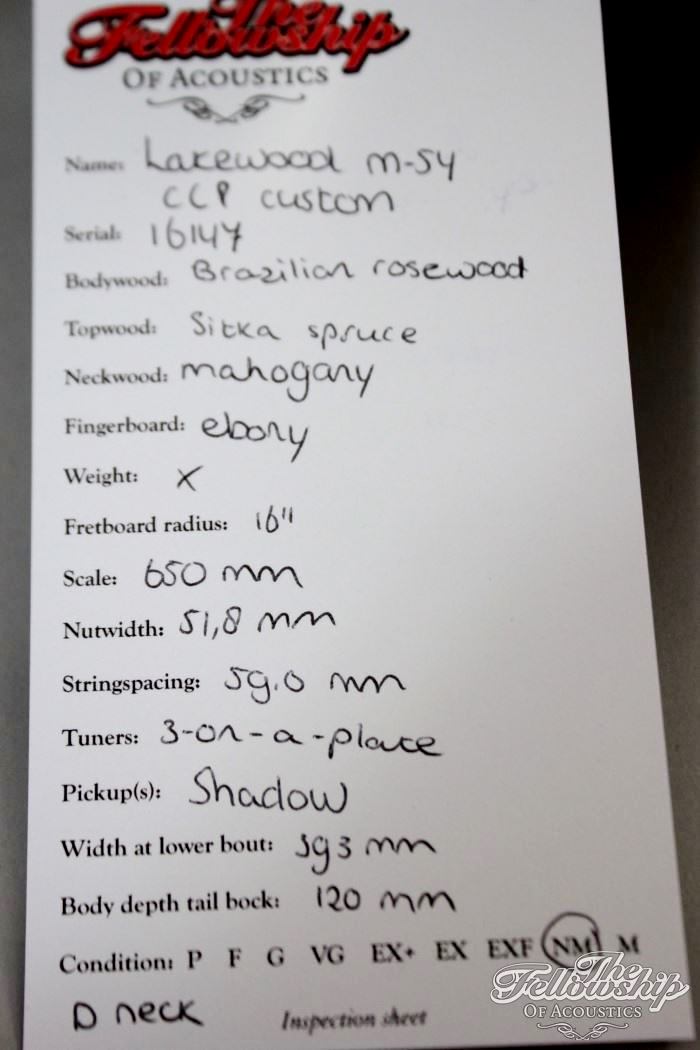 The
Fellowship
OF ACOUSTICS
Name: Lakewood M-54
CCP custom
Serial: 16147
Bodywood: Brazilian rosewood
Topwood: Sitka spruce
Neckwood: mahogany
Fingerboard: ebony
Weight: X
Fretboard radius: 16"
Scale: 650 mm
Nutwidth: 51,8 mm
Stringspacing: 59.0 mm
Tuners: 3-on-a-plate
Pickup(s): Shadow
Width at lower bout: 393 mm
Body depth tail bock: 120 mm
Condition: P F G VG EX+ EX EXF NM M
D neck Inspection sheet
The
Fellowship
OF ACOUSTICS